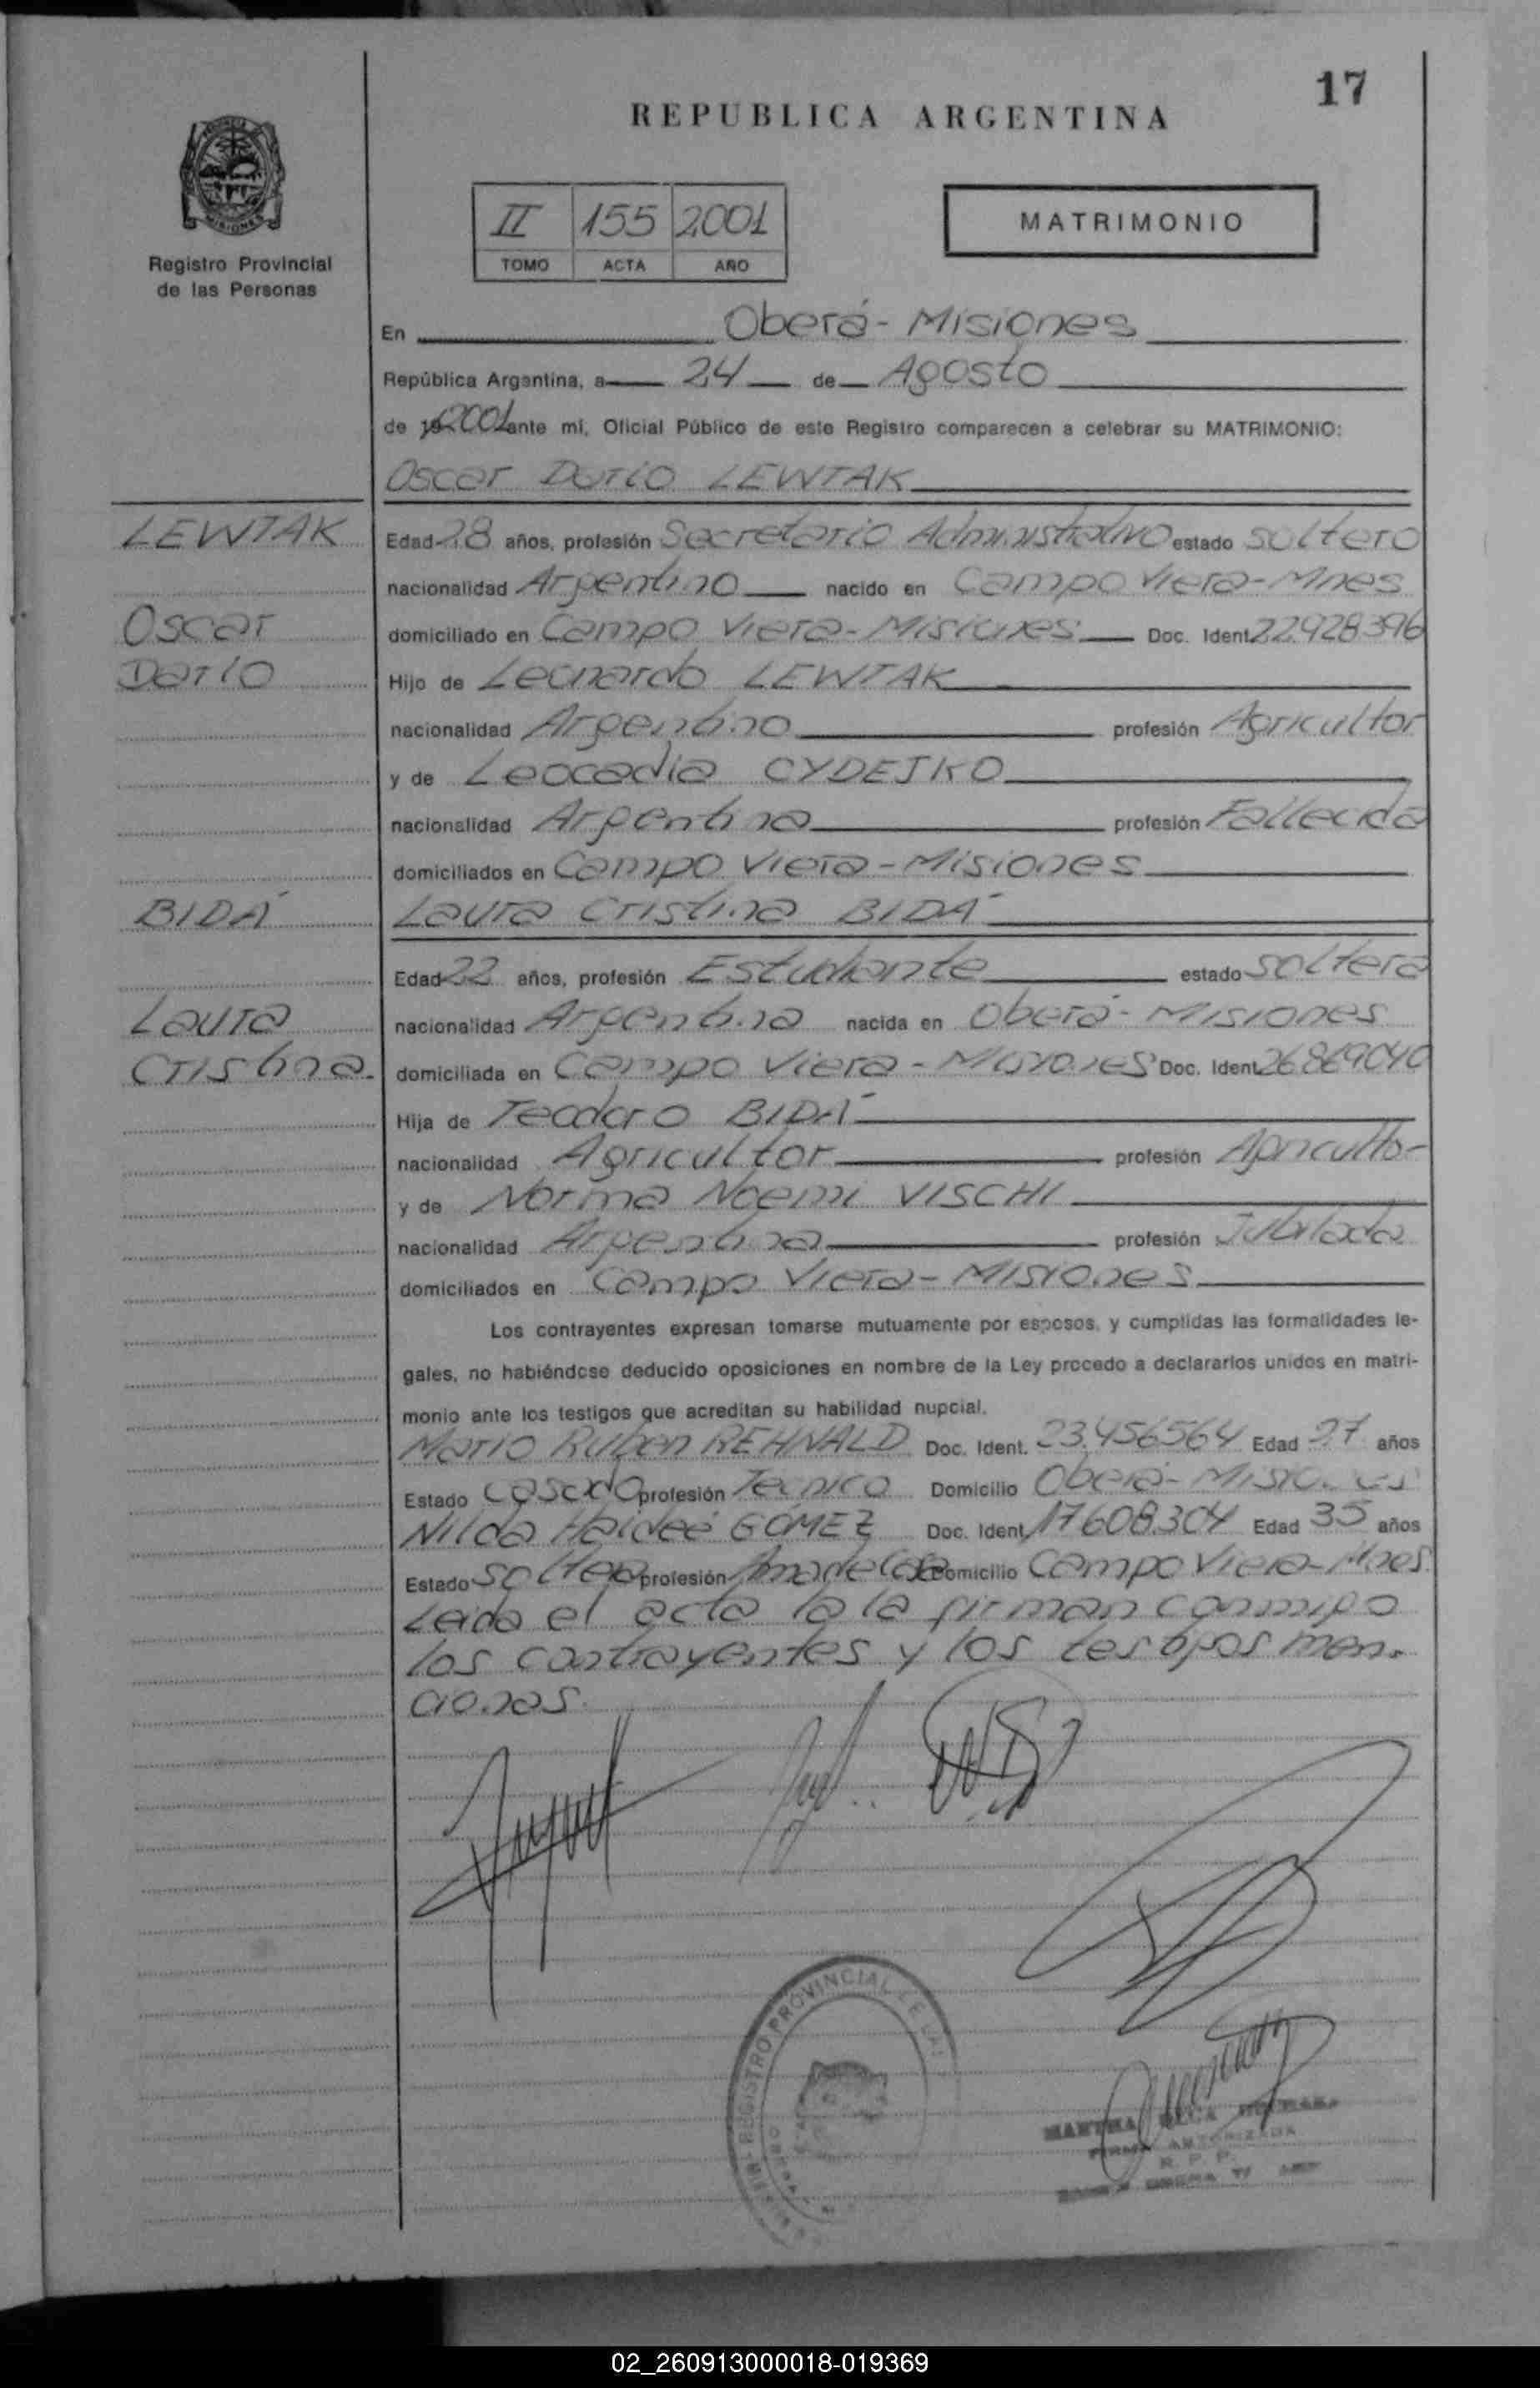 17
REPUBLICA ARGENTINA
II 155 2001
TOMO ACTA AÑO
MATRIMONIO
Registro Provincial
de las Personas
En Oberá - Misiones
República Argentina, a 24 de Agosto
de 19 2001 ante mí, Oficial Público de este Registro comparecen a celebrar su MATRIMONIO:
Oscar Dario LEWTAK
LEWTAK
Edad 28 años, profesión Secretario Administrativo estado soltero
nacionalidad Argentino nacido en Campo Viera - Mnes
Oscar
domiciliado en Campo Viera - Misiones Doc. Ident. 22.928.396
Dario
Hijo de Leonardo LEWTAK
nacionalidad Argentino profesión Agricultor
y de Leocadia CYDEJKO
nacionalidad Argentina profesión Fallecida
domiciliados en Campo Viera - Misiones
BIDÁ
Laura Cristina BIDÁ
Edad 22 años, profesión Estudiante estado soltera
Laura
nacionalidad Argentina nacida en Oberá - Misiones
Cristina
domiciliada en Campo Viera - Misiones Doc. Ident. 26869040
Hija de Teodoro BIDÁ
nacionalidad Agricultor profesión Agricultor
y de Norma Noemi VISCHI
nacionalidad Argentina profesión Jubilada
domiciliados en Campo Viera - Misiones
Los contrayentes expresan tomarse mutuamente por esposos, y cumplidas las formalidades le-
gales, no habiéndose deducido oposiciones en nombre de la Ley procedo a declararlos unidos en matri-
monio ante los testigos que acreditan su habilidad nupcial.
Mario Ruben REHNALD Doc. Ident. 23.456564 Edad 27 años
Estado Casado profesión Tecnico Domicilio Oberá - Misiones
Nilda Haideé GÓMEZ Doc. Ident. 17608304 Edad 35 años
Estado soltera profesión Ama de Casa Domicilio Campo Viera - Mnes.
Leida el acta la firman conmigo
los contrayentes y los testigos men-
cionas.
REGISTRO PROVINCIAL DE LAS
MARTHA
FIRMA AUTORIZADA
R. P. P.
02_260913000018-019369